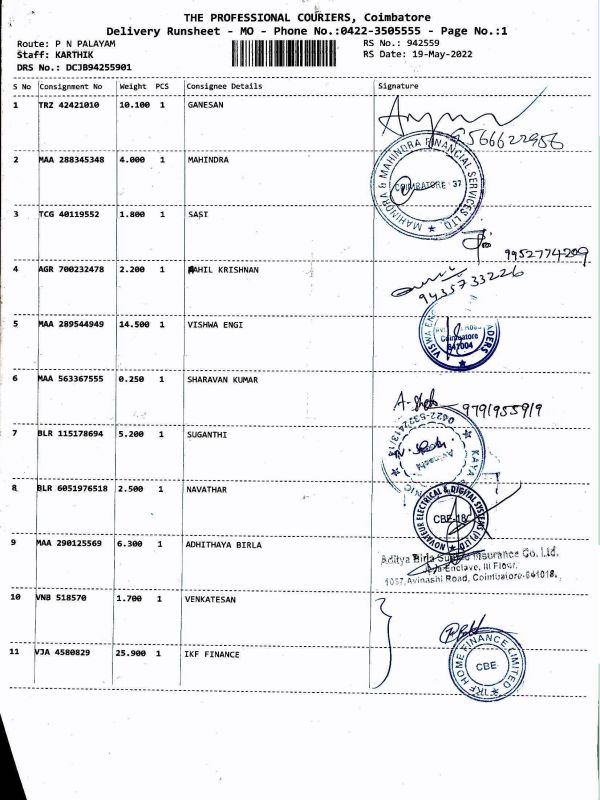 THE PROFESSIONAL COURIERS, Coimbatore
Delivery Runsheet - MO - Phone No.:0422-3505555 - Page No.:1
Route: P N PALAYAM
RS No.: 942559
Staff: KARTHIK
RS Date: 19-May-2022
DRS No.: DCJB94255901
S No Consignment No Weight PCS Consignee Details Signature
1 TRZ 42421010 10.100 1 GANESAN
9566622956
2 MAA 288345348 4.000 1 MAHINDRA
MAHINDRA & MAHINDRA FINANCIAL SERVICES LTD.
COIMBATORE - 37
3 TCG 40119552 1.800 1 SASI
9952774209
4 AGR 700232478 2.200 1 AHIL KRISHNAN
9435733226
5 MAA 289544949 14.500 1 VISHWA ENGI
Coimbatore
641004
6 MAA 563367555 0.250 1 SHARAVAN KUMAR
9791955919
7 BLR 115178694 5.200 1 SUGANTHI
KAYA
Avinashi
8 BLR 6051976518 2.500 1 NAVATHAR
NOVATEUR ELECTRICAL & DIGITAL SYSTEMS (P) LTD.
CBE-18
9 MAA 290125569 6.300 1 ADHITHAYA BIRLA
Aditya Birla Sun Insurance Co. Ltd.
Enclave, III Floor,
1057, Avinashi Road, Coimbatore-641018.
10 VNB 518570 1.700 1 VENKATESAN
11 VJA 4580829 25.900 1 IKF FINANCE
IKF HOME FINANCE LIMITED
CBE